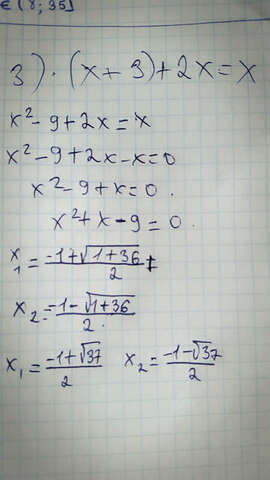 ∈ (8; 35]
3) · (x + 3) + 2x = x
x² - 9 + 2x = x
x² - 9 + 2x - x = 0
x² - 9 + x = 0.
x² + x - 9 = 0.
x₁ = (-1 + √(1 + 36)) / 2
x₂ = (-1 - √(1 + 36)) / 2.
x₁ = (-1 + √37) / 2 x₂ = (-1 - √37) / 2